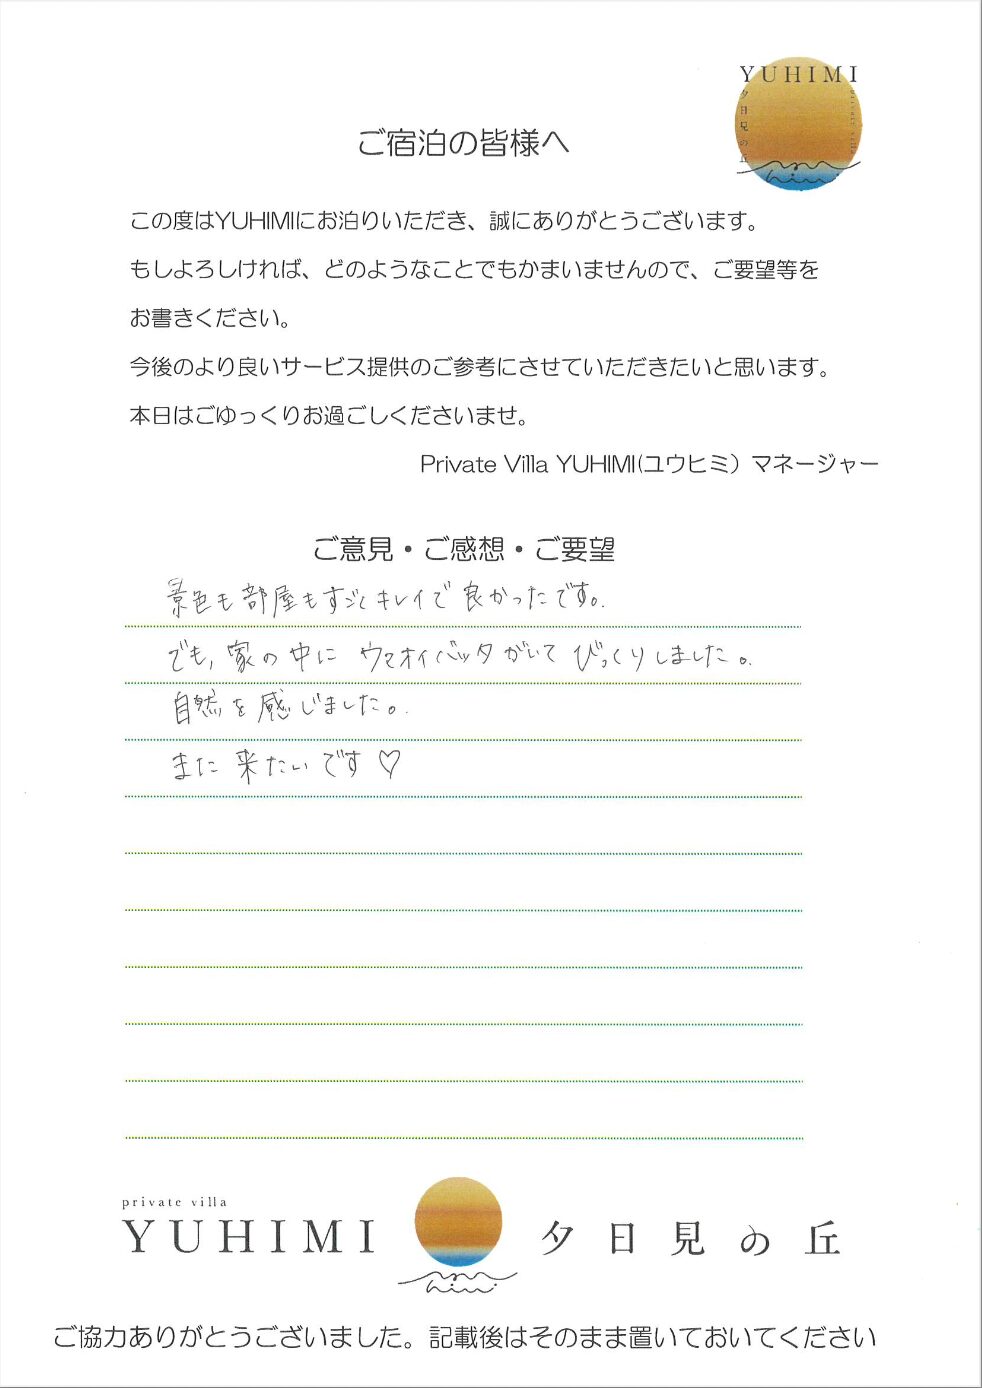 YUHIMI
夕日見の丘
private villa
ご宿泊の皆様へ
この度はYUHIMIにお泊りいただき、誠にありがとうございます。
もしよろしければ、どのようなことでもかまいませんので、ご要望等を
お書きください。
今後のより良いサービス提供のご参考にさせていただきたいと思います。
本日はごゆっくりお過ごしくださいませ。
Private Villa YUHIMI(ユウヒミ）マネージャー
ご意見・ご感想・ご要望
景色も部屋もすごくキレイで良かったです。
でも、家の中に ウマオイバッタがいて びっくりしました。
自然を感じました。
また来たいです♡
private villa
YUHIMI 夕日見の丘
ご協力ありがとうございました。記載後はそのまま置いておいてください